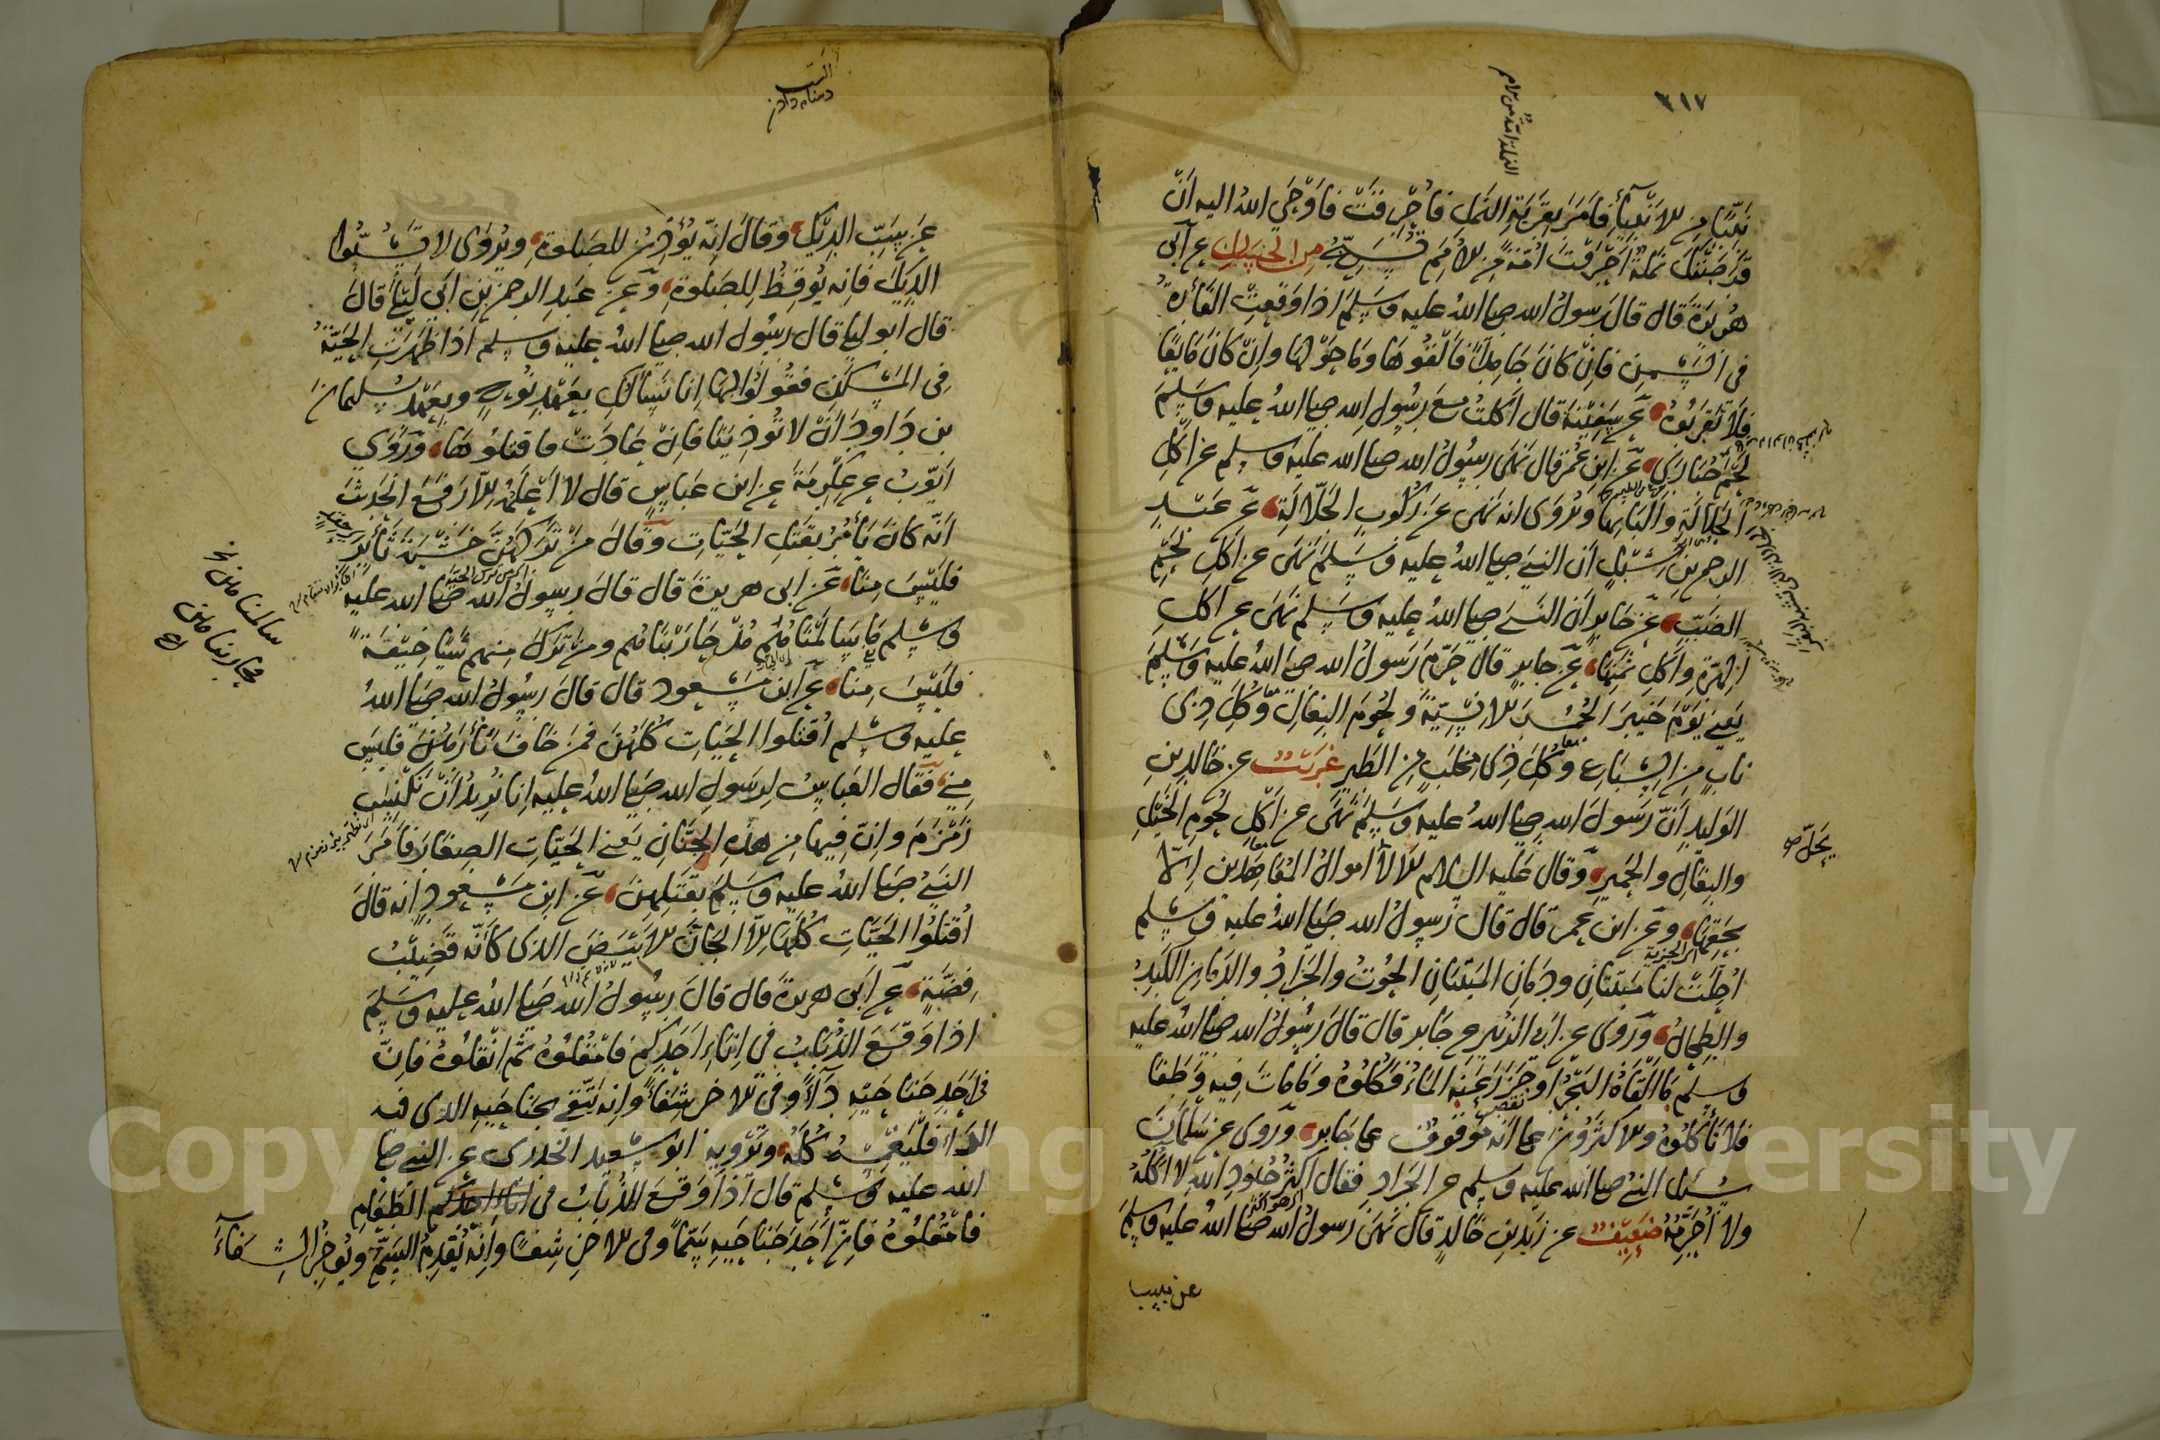 ٣١٧
النملة امة من الامم
نبيا من الانبياء فامر بقرية النمل فاحرقت فاوحى الله اليه ان
قرصتك نملة احرقت امة من الامم تسبح من الحسان عن ابي
هريرة قال قال رسول الله صلى الله عليه وسلم اذا وقعت الفأرة
في السمن فان كان جامدا فالقوها وما حولها وان كان مايعا
فلا تقربوه عن سفينة قال اكلت مع رسول الله صلى الله عليه وسلم
لحم حبارى عن ابن عمر قال نهى رسول الله صلى الله عليه وسلم عن اكل
الجلالة والبانها ويروى انه نهى عن ركوب الجلالة عن عبد
الرحمن بن شبل ان النبي صلى الله عليه وسلم نهى عن اكل لحم
الضب عن جابر ان النبي صلى الله عليه وسلم نهى عن اكل
الهرة واكل ثمنها عن جابر قال حرم رسول الله صلى الله عليه وسلم
يعني يوم خيبر الحمر الانسية ولحوم البغال وكل ذي
ناب من السباع وكل ذي مخلب من الطير غريب عن خالد بن
الوليد ان رسول الله صلى الله عليه وسلم نهى عن اكل لحوم الخيل
والبغال والحمير وقال عليه السلام الا لا اموال المعاهدين الا
يحل صح
بحقها وعن ابن عمر قال قال رسول الله صلى الله عليه وسلم
احلت لنا ميتتان ودمان الميتتان الحوت والجراد والدمان الكبد
والطحال وروى عن ابي الزبير عن جابر قال قال رسول الله صلى الله عليه
وسلم ما القاه البحر او جزر عنه الماء فكلوه وما مات فيه وطفا
فلا تأكلوه والاكثرون على انه موقوف على جابر وروى عن سلمان
سئل النبي صلى الله عليه وسلم عن الجراد فقال اكثر جنود الله لا اكله
ولا احرمه ضعيف عن زيد بن خالد قال نهى رسول الله صلى الله عليه وسلم
عن سب
السب
دشنام دادن
عن سب الديك وقال انه يؤذن للصلوة ويروى لا تسبوا
الديك فانه يوقظ للصلوة وعن عبد الرحمن بن ابي ليلى قال
قال ابو ليلى قال رسول الله صلى الله عليه وسلم اذا ظهرت الحية
في المسكن فقولوا لها انا نسألك بعهد نوح وبعهد سليمان
بن داود ان لا تؤذينا فان عادت فاقتلوها وروى
ايوب عن عكرمة عن ابن عباس قال لا اعلمه الا رفع الحديث
انه كان يأمر بقتل الحيات وقال من تركهن خشية ثائر
فليس منا عن ابي هريرة قال قال رسول الله صلى الله عليه
وسلم ما سالمناهم مذ حاربناهم ومن ترك منهم شيئا خيفة
سالمنا من
حاربنا من
فليس منا عن ابن مسعود قال قال رسول الله صلى الله
عليه وسلم اقتلوا الحيات كلهن فمن خاف ثأرهن فليس
مني فقال العباس لرسول الله صلى الله عليه انا نريد ان نكنس
زمزم وان فيها من هذه الجنان يعني الحيات الصغار فامر
النبي صلى الله عليه وسلم بقتلهن عن ابن مسعود انه قال
اقتلوا الحيات كلها الا الجان الابيض الذي كأنه قضيب
فضة عن ابي هريرة قال قال رسول الله صلى الله عليه وسلم
اذا وقع الذباب في اناء احدكم فامقلوه ثم انقلوه فان
في احد جناحيه داء وفي الاخر شفاء وانه يتقي بجناحيه الذي فيه
الداء فليغمسه كله ويرويه ابو سعيد الخدري عن النبي صلى
الله عليه وسلم قال اذا وقع الذباب في الطعام
فامقلوه فان احد جناحيه سما وفي الاخر شفا وانه يقدم السم ويؤخر الشفاء
Copyright © King Saud University